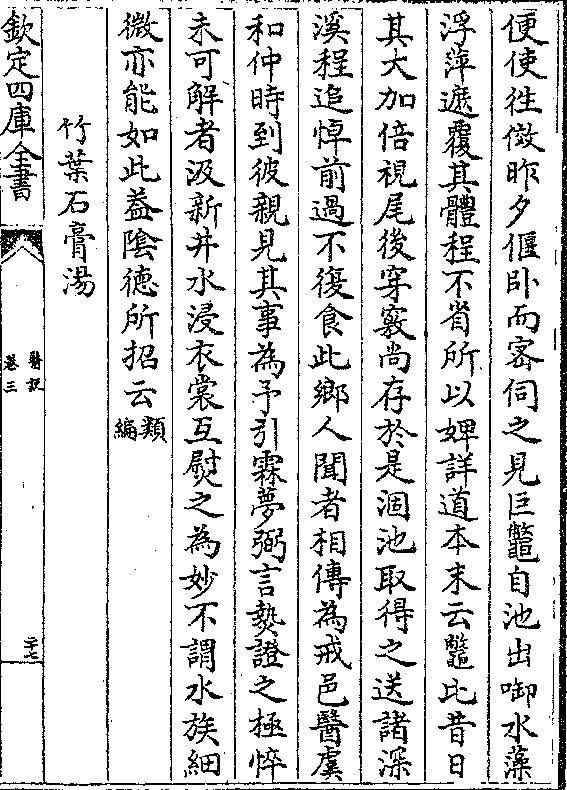 便使徃傚昨夕偃卧而宻伺之見巨鼈自池出啣水藻
浮萍遮覆其體程不省所以婢詳道本末云鼈比昔日
其大加倍視尾後穿竅尚存於是涸池取得之送諸深
溪程追悼前過不復食此鄉人聞者相傳為戒邑醫虞
和仲時到彼親見其事為予引霖夢弼言𤍠證之極悴
未可解者汲新井水浸衣裳互熨之為妙不謂水族細
微亦能如此葢隂徳所招云類編
竹葉石膏湯
欽定四庫全書
醫説
卷三
二七